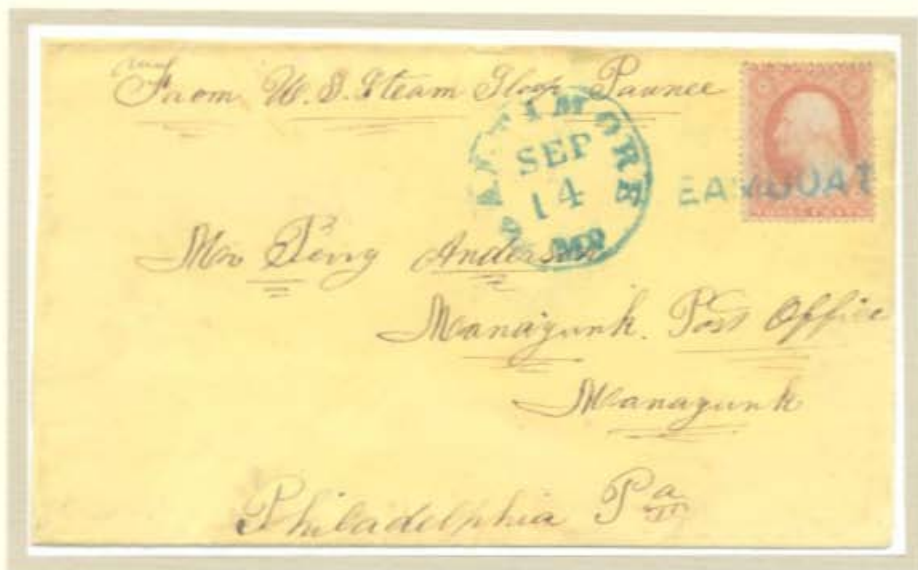 From U.S. Steam Sloop Pawnee
BALTIMORE
SEP
14
MD
EAMBOAT
Mr Perry Anderson
Manayunk. Post Office
Manayunk
Philadelphia Pa